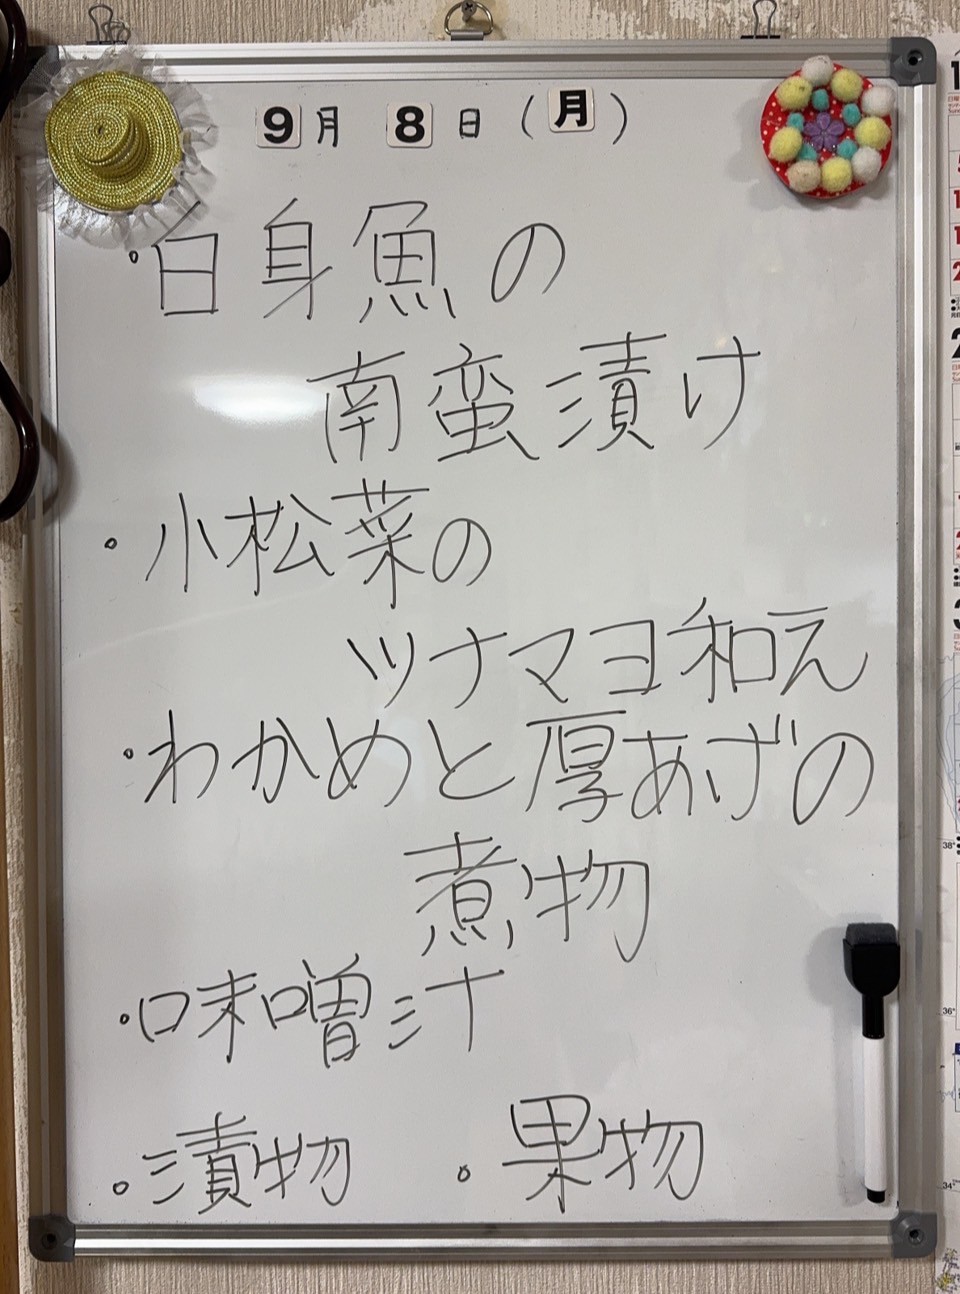 9月 8日(月)
・白身魚の
南蛮漬け
・小松菜の
ツナマヨ和え
・わかめと厚あげの
煮物
・味噌汁
・漬物 ・果物